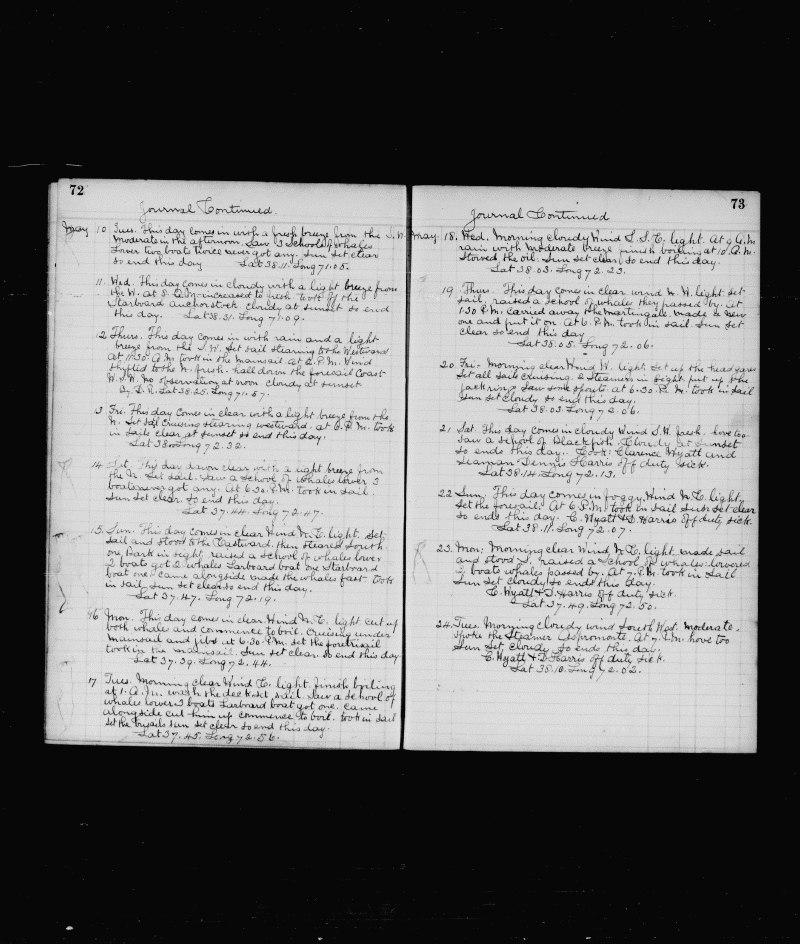 72
Journal Continued.
May 10 Tues. This day comes in with a fresh breeze from the S.W.
Moderate in the afternoon. Saw 3 Schools of whales
Lower two boats twice never got any. Sun Set clear
so end this day Lat 38.11. Long 71.05.
11. Wed. This day comes in cloudy with a light breeze from
the W. at 8. A.M. increased to fresh took off the
Starboard Anchor stock. cloudy at sunset so end
this day. Lat 38.31. Long 71.09.
12 Thurs. This day comes in with rain and a light
breeze from the S.W. Set sail stearing to the Westward
At 11.30 A.M. took in the mainsail. At 2. P.M. Wind
shifted to the N. fresh. hall down the foresail Coast
W.S.W. No observation at noon cloudy at sunset
By. D.R. Lat 38.25. Long 71.57.
13 Fri. This day comes in clear with a light breeze from the
N. Set sail cruising stearing westward. at 6. P.M. took
in sails clear at sunset so end this day.
Long 72.32.
14. Sat. This day dawn clear with a light breeze from
the N. Set sail. Saw a school of whales lower 3
boats never got any. At 6.30. P.M. took in sail.
Sun Set clear. So end this day.
Lat 37.44. Long 72.47.
15. Sun. This day comes in clear Wind N.E. light. Set
sail and stood to the Eastward. then steared South
one bark in sight, raised a school of whales lower
3 boats got 2 whales Larboard boat one Starboard
boat one. Came alongside made the whales fast took
in sail. Sun set clear so end this day.
Lat 37.47. Long 72.19.
16 Mon. This day comes in clear. Wind N.E. light cut up
both whales and commence to boil. Cruising under
Mainsail and jibs. at 6.30. P.M. set the foretrisail
took in the mainsail. Sun set clear. so end this day
Lat 37.39. Long 72.44.
17 Tues. Morning clear Wind E. light. finish boiling
at 1. A.M. wash the deck set sail. Saw a school of
whales lower 3 boats Larboard boat got one. Came
alongside cut him up commence to boil. took in sail
Set the trysails Sun set clear so end this day.
Lat 37.45. Long 72.56.
73
Journal Continued
May. 18. Wed. Morning cloudy Wind S.S.E. light. At 9 A.M.
rain with moderate breeze finish boiling at 10. A.M.
Stowed the oil. Sun set clear, so end this day.
Lat 38.03. Long 72.23.
19. Thus. This day comes in clear wind N.W. light set
sail, raised a school of whales they passed by. At
1.30 P.M. carried away the martingale. made a new
one and put it on. At 6. P.M. took in sail. Sun set
clear so end this day
Lat 38.05. Long 72.06.
20. Fri. Morning clear Wind W. light. Set up the head gear
Set all sails cruising. 2 Steamers in sight put up the
jack rings Saw some spouts at 6.30. P.M. took in sail
Sun set cloudy so end this day.
Lat 38.03. Long 72.06.
21. Sat. This day comes in cloudy Wind S.W. fresh. hove too
Saw a school of Blackfish. Cloudy at sunset
so ends this day. Cook: Clarence Wyatt and
Seaman Dennis Harris off duty sick.
Lat 38.14. Long 72.13.
22 Sun. This day comes in foggy Wind N.E. light,
Set the foresail. At 6. P.M. took in sail Sun set clear
so ends this day. C. Wyatt & D. Harris off duty sick.
Lat 38.11. Long 72.07.
23. Mon. Morning clear Wind N.E. light. made sail
and stood S. raised a School of whales lowered
3 boats whales passed by. At 7. P.M. took in sail
Sun Set cloudy so ends this day.
C. Wyatt & D. Harris off duty sick.
Lat 37.49. Long 72.50.
24. Tues. Morning cloudy wind South West. moderate.
Spoke the Steamer At 7. P.M. hove too
Sun Set cloudy so ends this day.
C. Wyatt & D. Harris off duty sick.
Lat 38.10. Long 72.02.